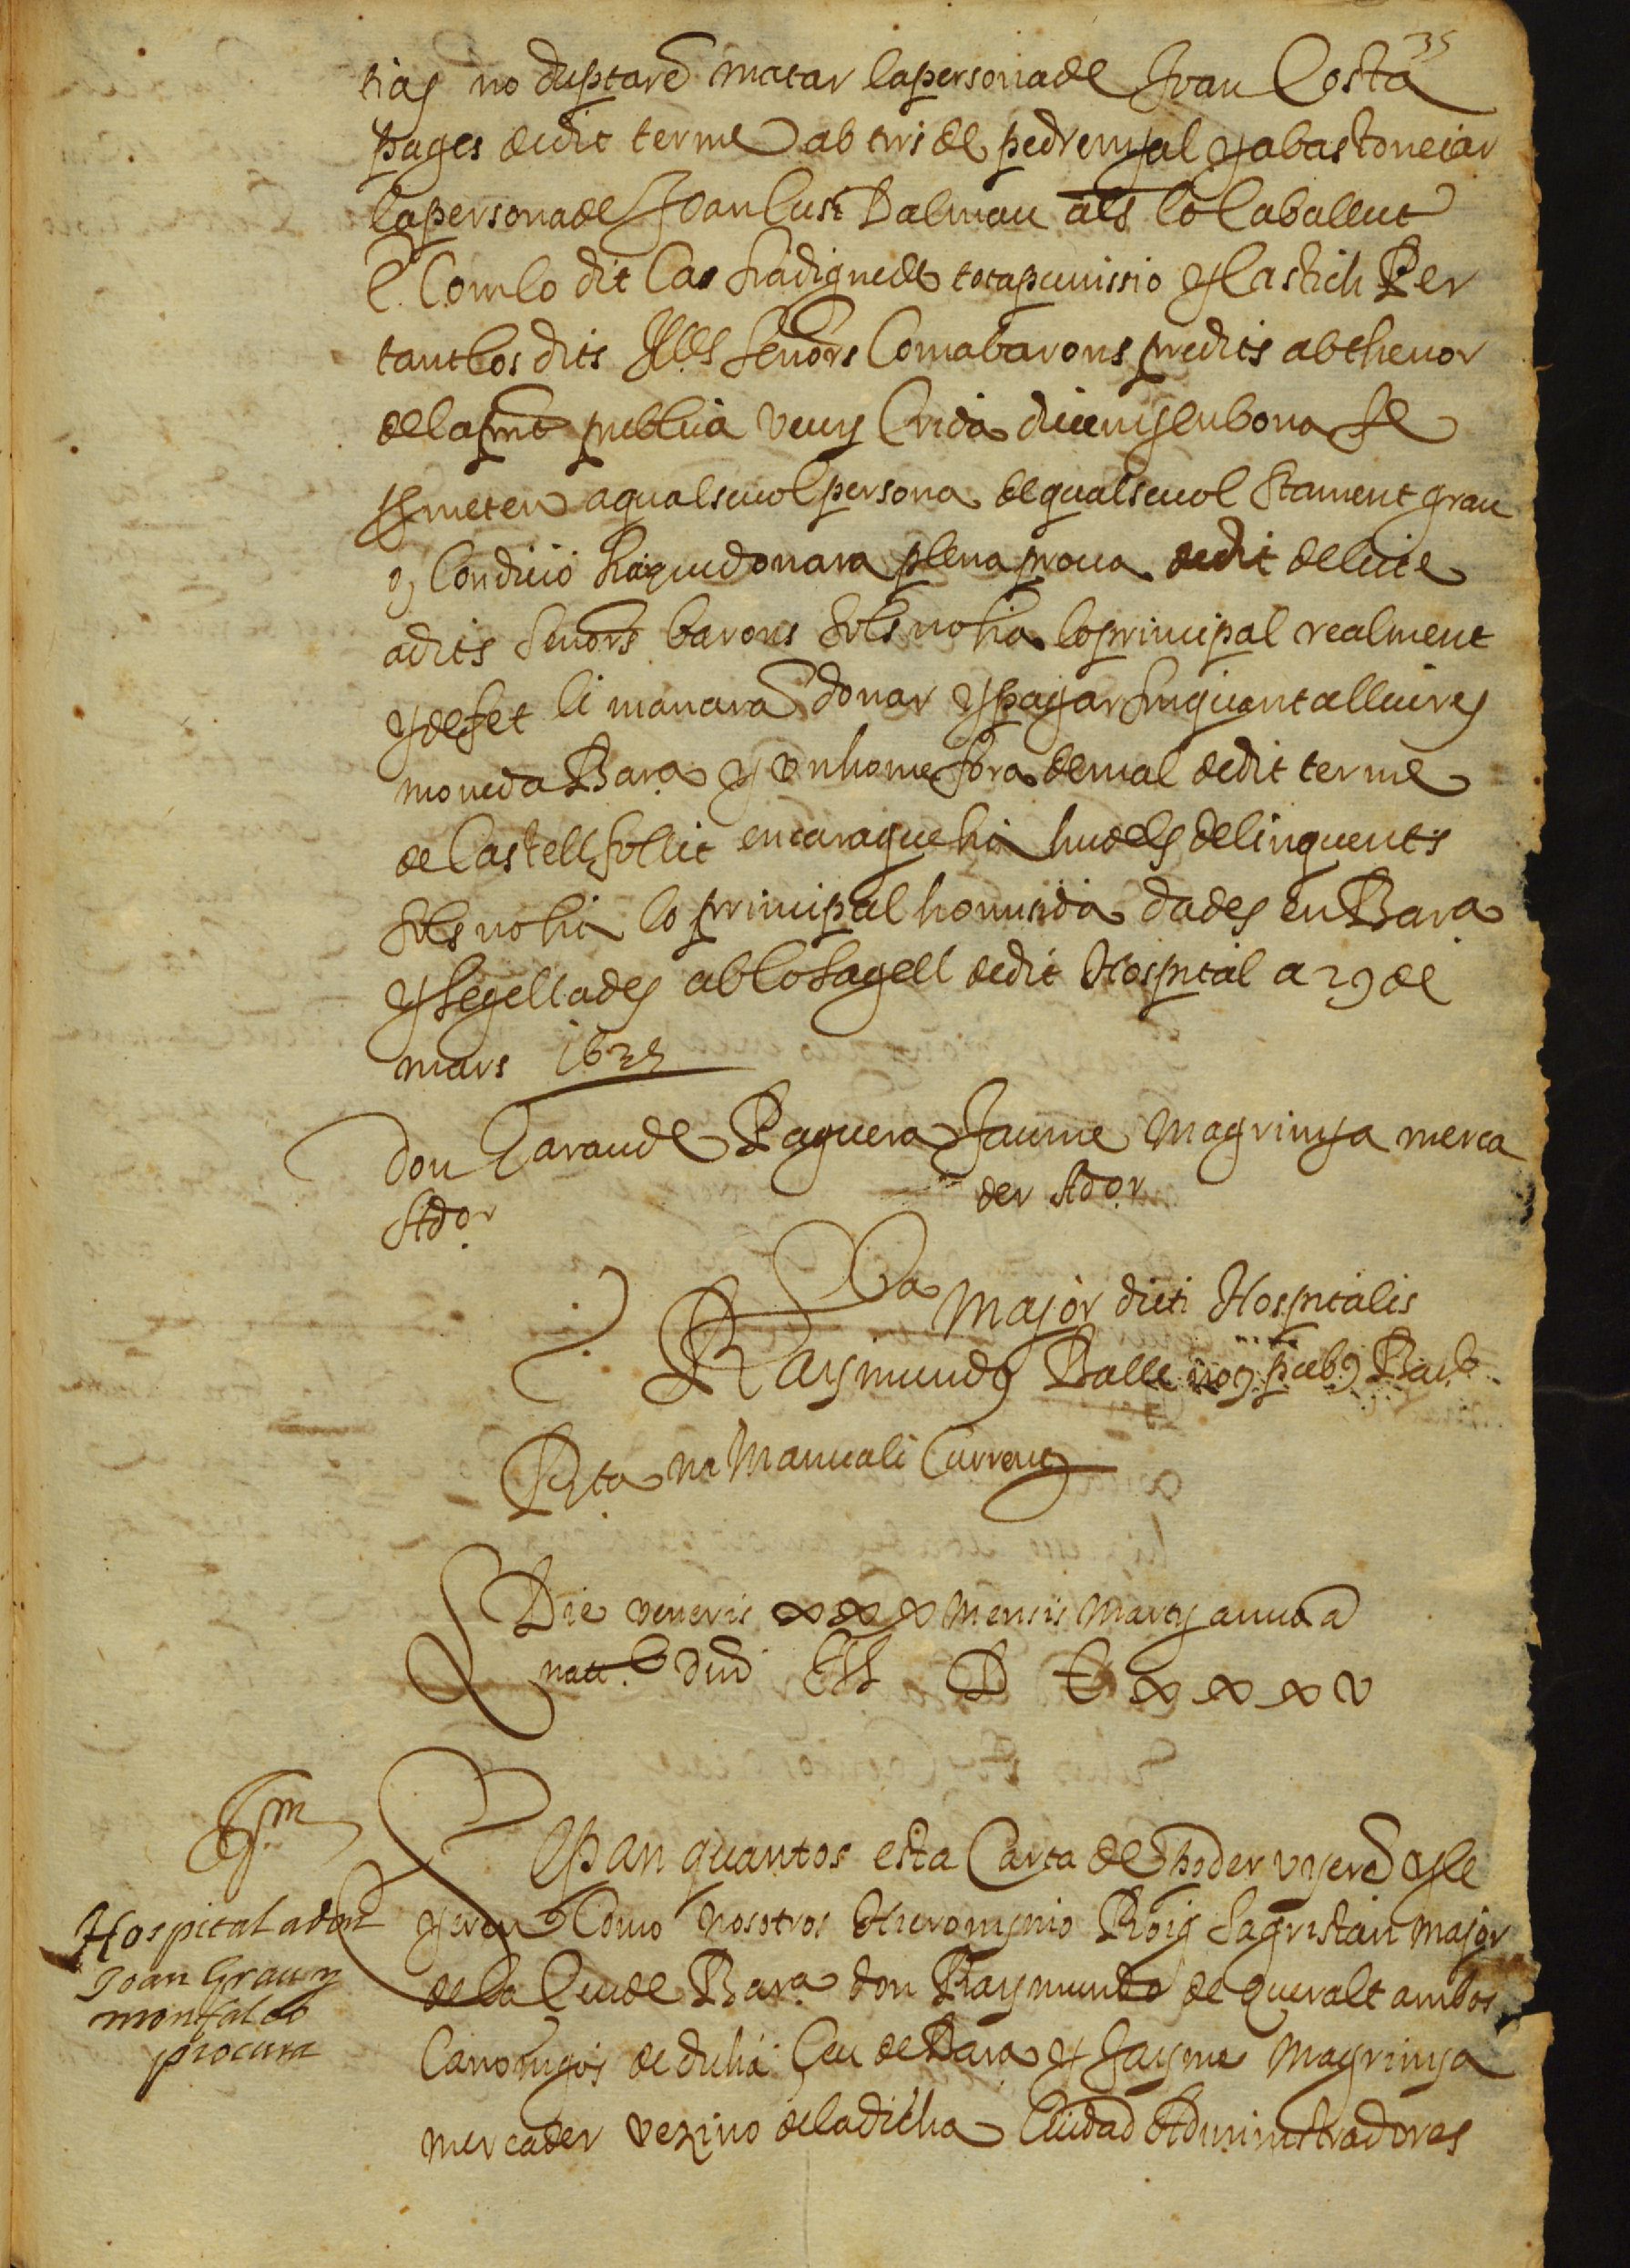 35
tias no duptarẽ matar la persona de Joan Costa
pages de dit terme ab tirs de pedrenyal y abastonejar
la persona de Joan Cusi Dalmau als lo Caballut
E. Com lo dit Cas sia digne de tota punissio y Castich Per
tant los dits Illes Senors Com a barons predits ab thenor
de la pnt publica veus Crida dienys en bona fe
pmeten a qualsevol persona de qualsevol stament grau
o Condicio sia que donara plena prova de dit delicte
a dits senors barons sols no sia lo principal realment
y de fet li manara donar y pagar sinquanta lliures
moneda Bara y un home fora de mal de dit terme
de Castellfollit encara que sia hu dels delinquents
sols no sia lo principal homisida dades en Bara
y segellades ab lo sagell de dit Hospital a 29 de
mars 1635
don Garau de Paguera Jaume Magrinya merca
Ador der Ador
Va Major dicti Hospitalis
Raymundus Batlle nos pubs Bar
Rta in Manuali Currenti
Die veneris xxx mensis Marty anno a
nat. Dni M D C xxx v
fm
Hospital adnt
Joan Grau y
monfalco
procura
Sepan quantos esta Carta de Poder vyerẽ y le
yeren Como nosotros Hieronymo Roig Sagristan Major
de la Seu de Bara don Raymundo de queralt ambos
Canonygos de dicha Seu de Bara y Jayme Magrinya
mercader vezino de la dicha Ciudad Administradores